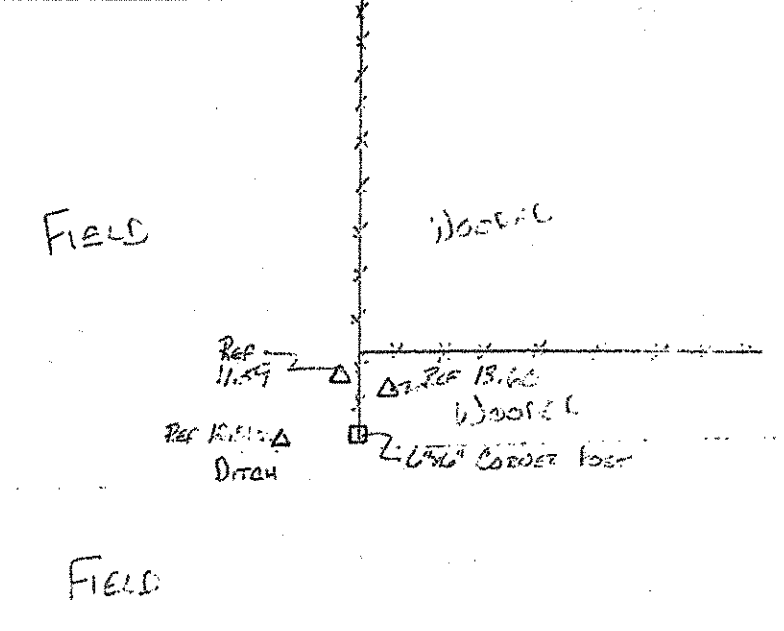 FIELD
WOODED
REF
11.59
REF 13.60
WOODED
REF
DITCH
6"x6" CORNER POST
FIELD